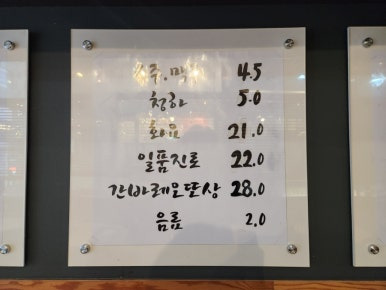 주, 맥주 4.5
청하 5.0
화요 21.0
일품진로 22.0
간바레오또상 28.0
음료 2.0